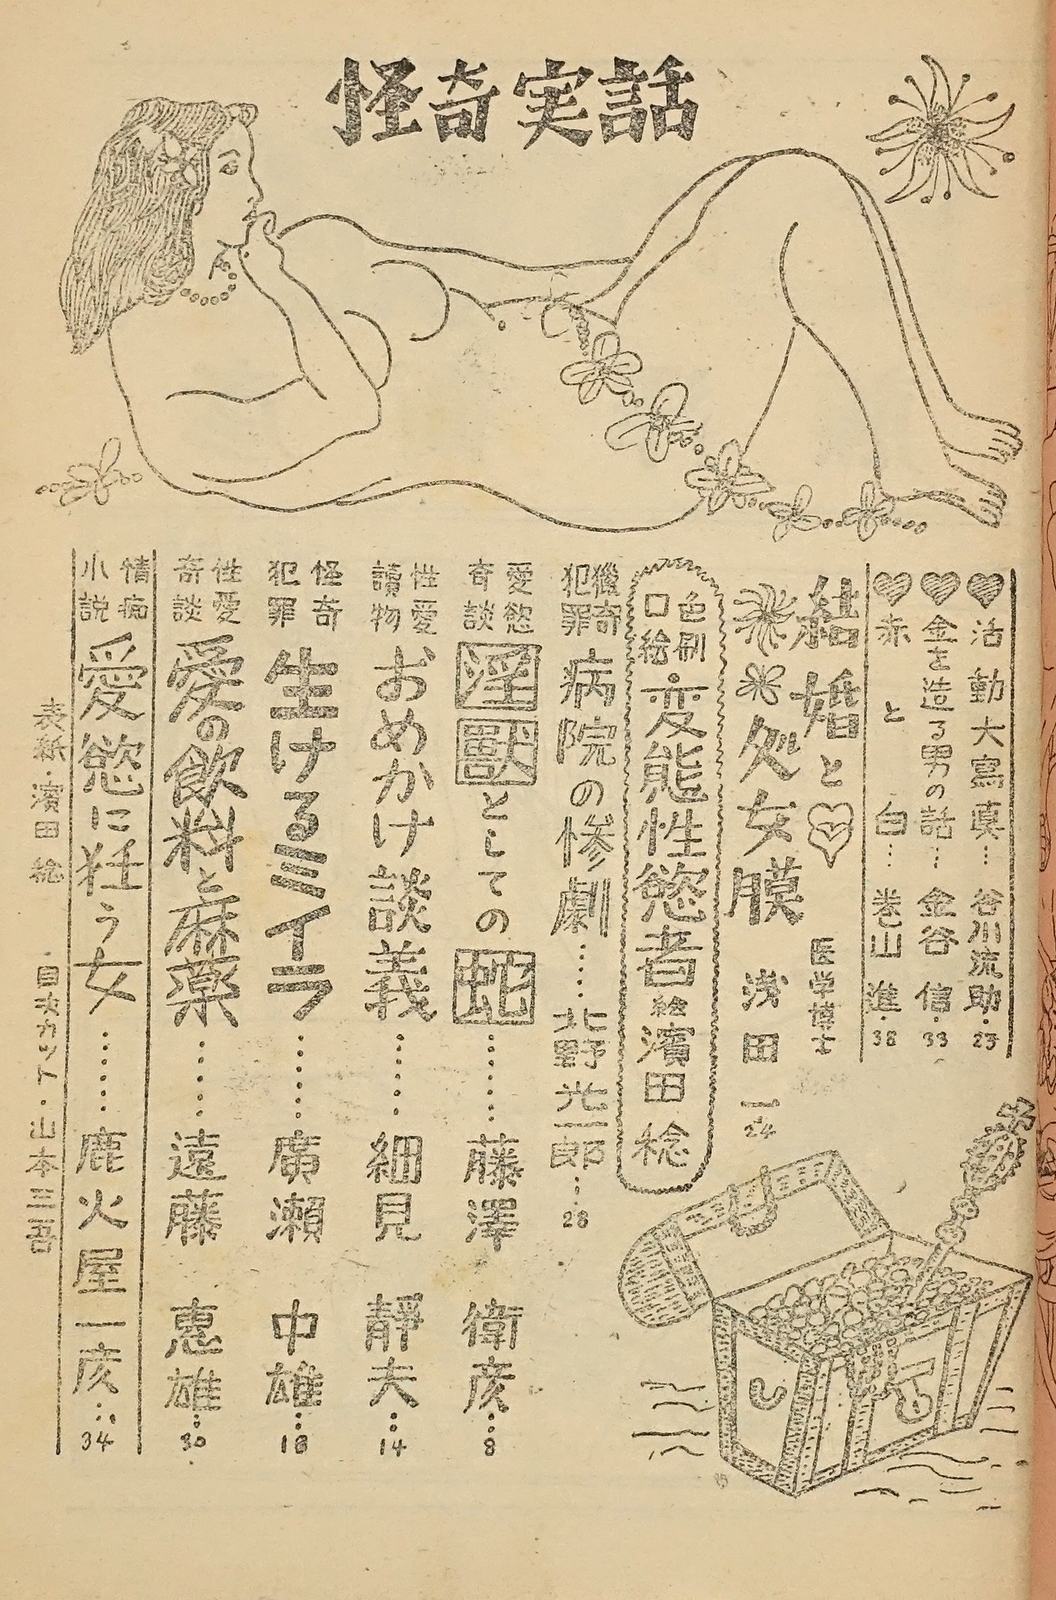 怪奇実話
活動大寫真…谷川流助・23
金を造る男の話…金谷信・33
赤と白…巻山進・38
結婚と
処女膜
医学博士
浅田一 24
色刷口絵
変態性慾者 絵 濱田稔
獵奇犯罪
病院の惨劇……北野光一郎…28
愛慾奇談
淫獸としての蛇……藤澤衛彦…8
性愛讀物
おめかけ談義……細見靜夫…14
怪奇犯罪
生けるミイラ……廣瀬中雄…18
性愛奇談
愛の飲料と麻薬……遠藤恵雄…30
情痴小説
愛慾に狂う女……鹿火屋一彦…34
表紙・濱田稔
目次カット・山本三吾